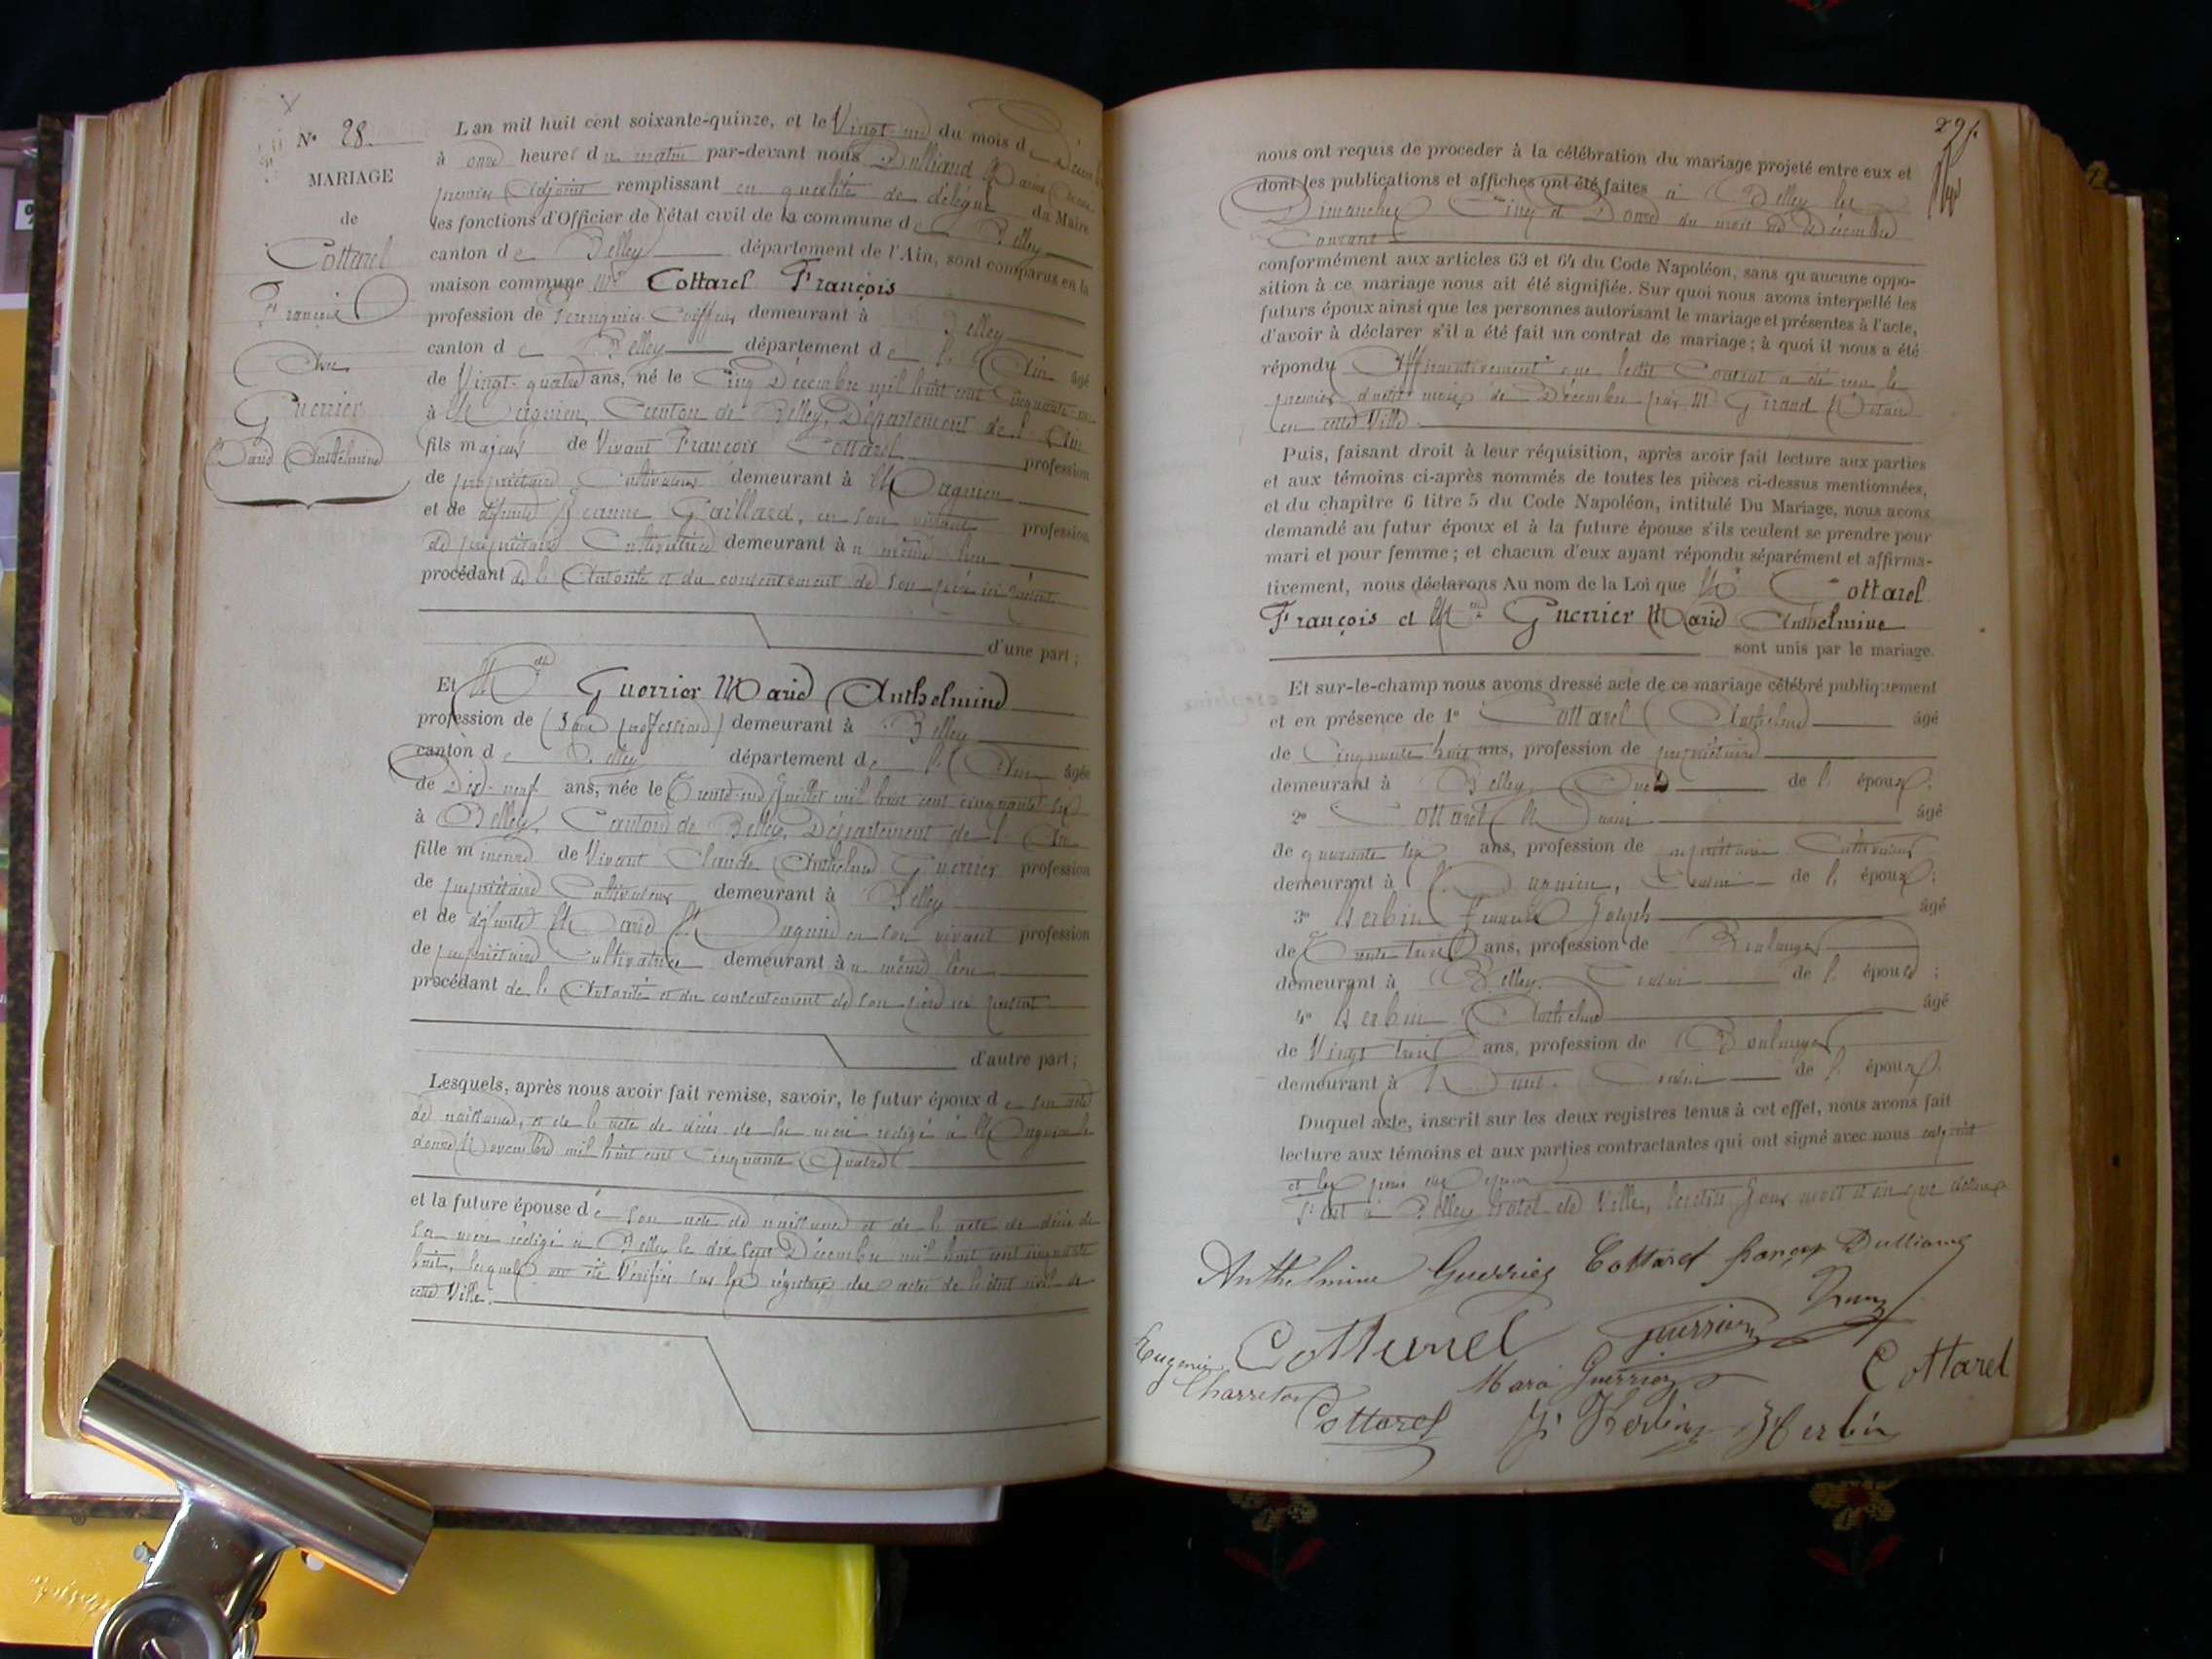 N° 28
MARIAGE
de
Cottarel
François
Avec
Guerrier
Marie Anthelmine
L'an mil huit cent soixante-quinze, et le Vingt-un du mois de Décembre
à onze heures du matin par-devant nous Dulliand
premier Adjoint remplissant en qualité de délégué du Maire
les fonctions d'Officier de l'état civil de la commune de Belley
canton de Belley département de l'Ain, sont comparus en la
maison commune Mr Cottarel François
profession de Perruquier Coiffeur demeurant à Belley
canton de Belley département de l'Ain âgé
de Vingt-quatre ans, né le Cinq Décembre mil huit cent Cinquante-un
à Magnieu, Canton de Belley, Département de l'Ain
fils majeur de Vivant François Cottarel profession
de propriétaire Cultivateur demeurant à Magnieu
et de défunte Jeanne Gaillard, en son vivant profession
de propriétaire Cultivatrice demeurant au même lieu
procédant de l'Autorité et du consentement de son père ici présent
d'une part ;
Et Mlle Guerrier Marie Anthelmine
profession de (sans profession) demeurant à Belley
canton de Belley département de l'Ain âgée
de Dix-neuf ans, née le Trente-un Juillet mil huit cent cinquante six
à Belley, Canton de Belley, Département de l'Ain
fille mineure de Vivant Claude Anthelme Guerrier profession
de propriétaire Cultivateur demeurant à Belley
et de défunte Marie en son vivant profession
de propriétaire Cultivatrice demeurant au même lieu
procédant de l'Autorité et du consentement de son père ici présent
d'autre part ;
Lesquels, après nous avoir fait remise, savoir, le futur époux de son acte
de naissance, et de l'acte de décès de sa mère rédigé à Magnieu le
douze Novembre mil huit cent Cinquante Quatre
et la future épouse de son acte de naissance et de l'acte de décès de
sa mère rédigé à Belley le dix sept Décembre mil huit cent cinquante
huit, lesquels ont été Vérifiés sur les registres des actes de l'état civil de
cette Ville.
291
nous ont requis de procéder à la célébration du mariage projeté entre eux et
dont les publications et affiches ont été faites à Belley les
Dimanches Cinq et Douze du mois de Décembre
Courant
conformément aux articles 63 et 64 du Code Napoléon, sans qu'aucune oppo-
sition à ce mariage nous ait été signifiée. Sur quoi nous avons interpellé les
futurs époux ainsi que les personnes autorisant le mariage et présentes à l'acte,
d'avoir à déclarer s'il a été fait un contrat de mariage ; à quoi il nous a été
répondu Affirmativement que ledit Contrat a été reçu le
premier dudit mois de Décembre par Mr Giraud Notaire
en cette Ville.
Puis, faisant droit à leur réquisition, après avoir fait lecture aux parties
et aux témoins ci-après nommés de toutes les pièces ci-dessus mentionnées,
et du chapitre 6 titre 5 du Code Napoléon, intitulé Du Mariage, nous avons
demandé au futur époux et à la future épouse s'ils veulent se prendre pour
mari et pour femme ; et chacun d'eux ayant répondu séparément et affirma-
tivement, nous déclarons Au nom de la Loi que Mr Cottarel
François et Mlle Guerrier Marie Anthelmine
sont unis par le mariage.
Et sur-le-champ nous avons dressé acte de ce mariage célébré publiquement
et en présence de 1° Cottarel Anthelme âgé
de Cinquante huit ans, profession de propriétaire
demeurant à Belley, Oncle de l'époux ;
2° Cottarel âgé
de quarante six ans, profession de propriétaire Cultivateur
demeurant à Magnieu, Cousin de l'époux ;
3° Herbin François Joseph âgé
de Trente trois ans, profession de Boulanger
demeurant à Belley, Cousin de l'épouse ;
4° Herbin Anthelme âgé
de Vingt trois ans, profession de Boulanger
demeurant à Cousin de l'époux.
Duquel acte, inscrit sur les deux registres tenus à cet effet, nous avons fait
lecture aux témoins et aux parties contractantes qui ont signé avec nous
et les
Fait à Belley hotel de Ville, lesdits Jour mois et an que dessus
Anthelmine Guerrier Cottarel françois Dulliand
Cottarel Guerrier
Eugenie Charreton Maria Guerrier Cottarel
Cottarel J. Herbin Herbin